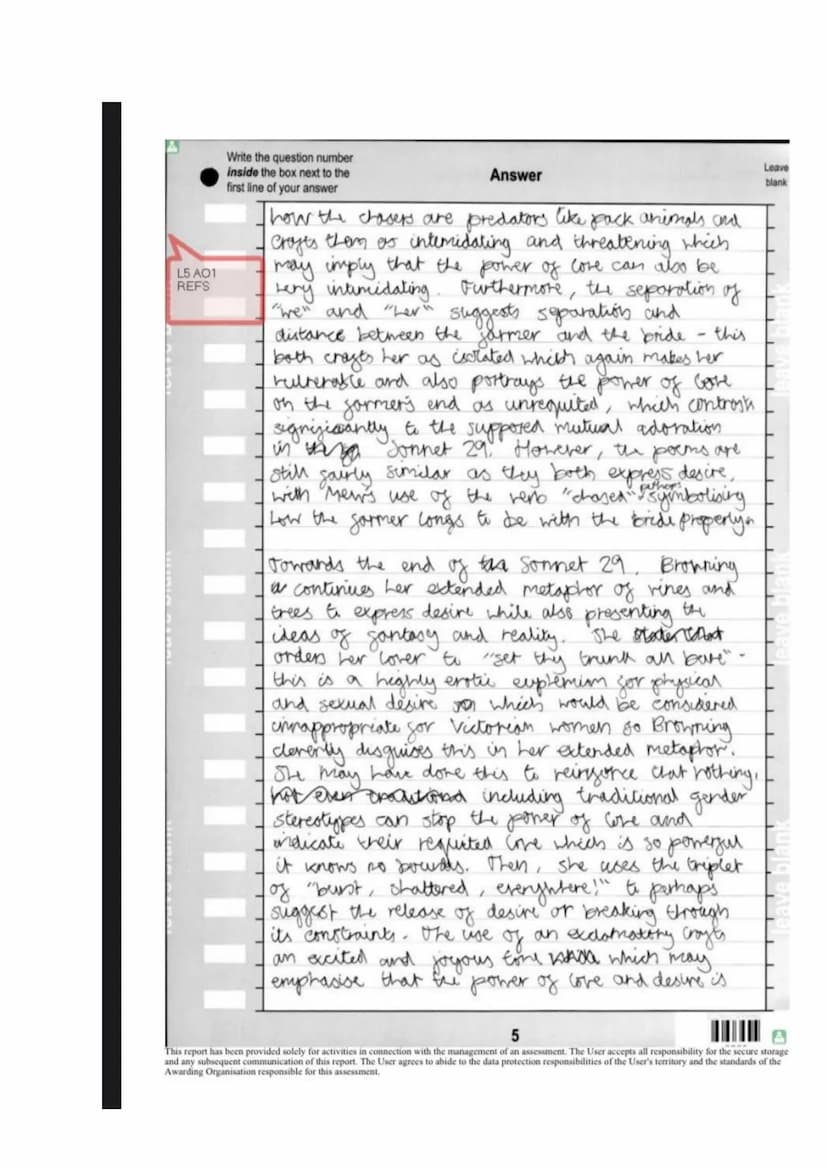 Write the question number
inside the box next to the
first line of your answer
Answer
Leave
blank
L5 AO1
REFS
how the chasers are predators like pack animals and
crafts them as intimidating and threatening which
may imply that the power of love can also be
very intimidating. Furthermore, the separation of
"we" and "her" suggests separation and
distance between the farmer and the bride - this
both crafts her as isolated which again makes her
vulnerable and also portrays the power of love
on the farmer's end as unrequited, which contrasts
significantly to the supposed mutual adoration
in Sonnet 29. However, the poems are
still fairly similar as they both express desire,
with Mew's use of the verb "chased" perhaps symbolising
how the farmer longs to be with the bride properly.
Towards the end of Sonnet 29, Browning
continues her extended metaphor of vines and
trees to express desire while also presenting the
ideas of fantasy and reality. She states that
orders her lover to "set thy trunk all bare" -
this is a highly erotic euphemism for physical
and sexual desire which would be considered
innappropriate for Victorian women so Browning
cleverly disguises this in her extended metaphor.
She may have done this to reinforce that nothing,
not even traditional including traditional gender
stereotypes can stop the power of love and
indicate their requited love which is so powerful
it knows no bounds. Then, she uses the triplet
of "burst, shattered, everywhere!" to perhaps
suggest the release of desire or breaking through
its constraints. The use of an exclamatory crafts
an excited and joyous tone which may
emphasise that the power of love and desire is
leave blank
leave blank
leave blank
leave blank
leave blank
5
This report has been provided solely for activities in connection with the management of an assessment. The User accepts all responsibility for the secure storage
and any subsequent communication of this report. The User agrees to abide to the data protection responsibilities of the User's territory and the standards of the
Awarding Organisation responsible for this assessment.